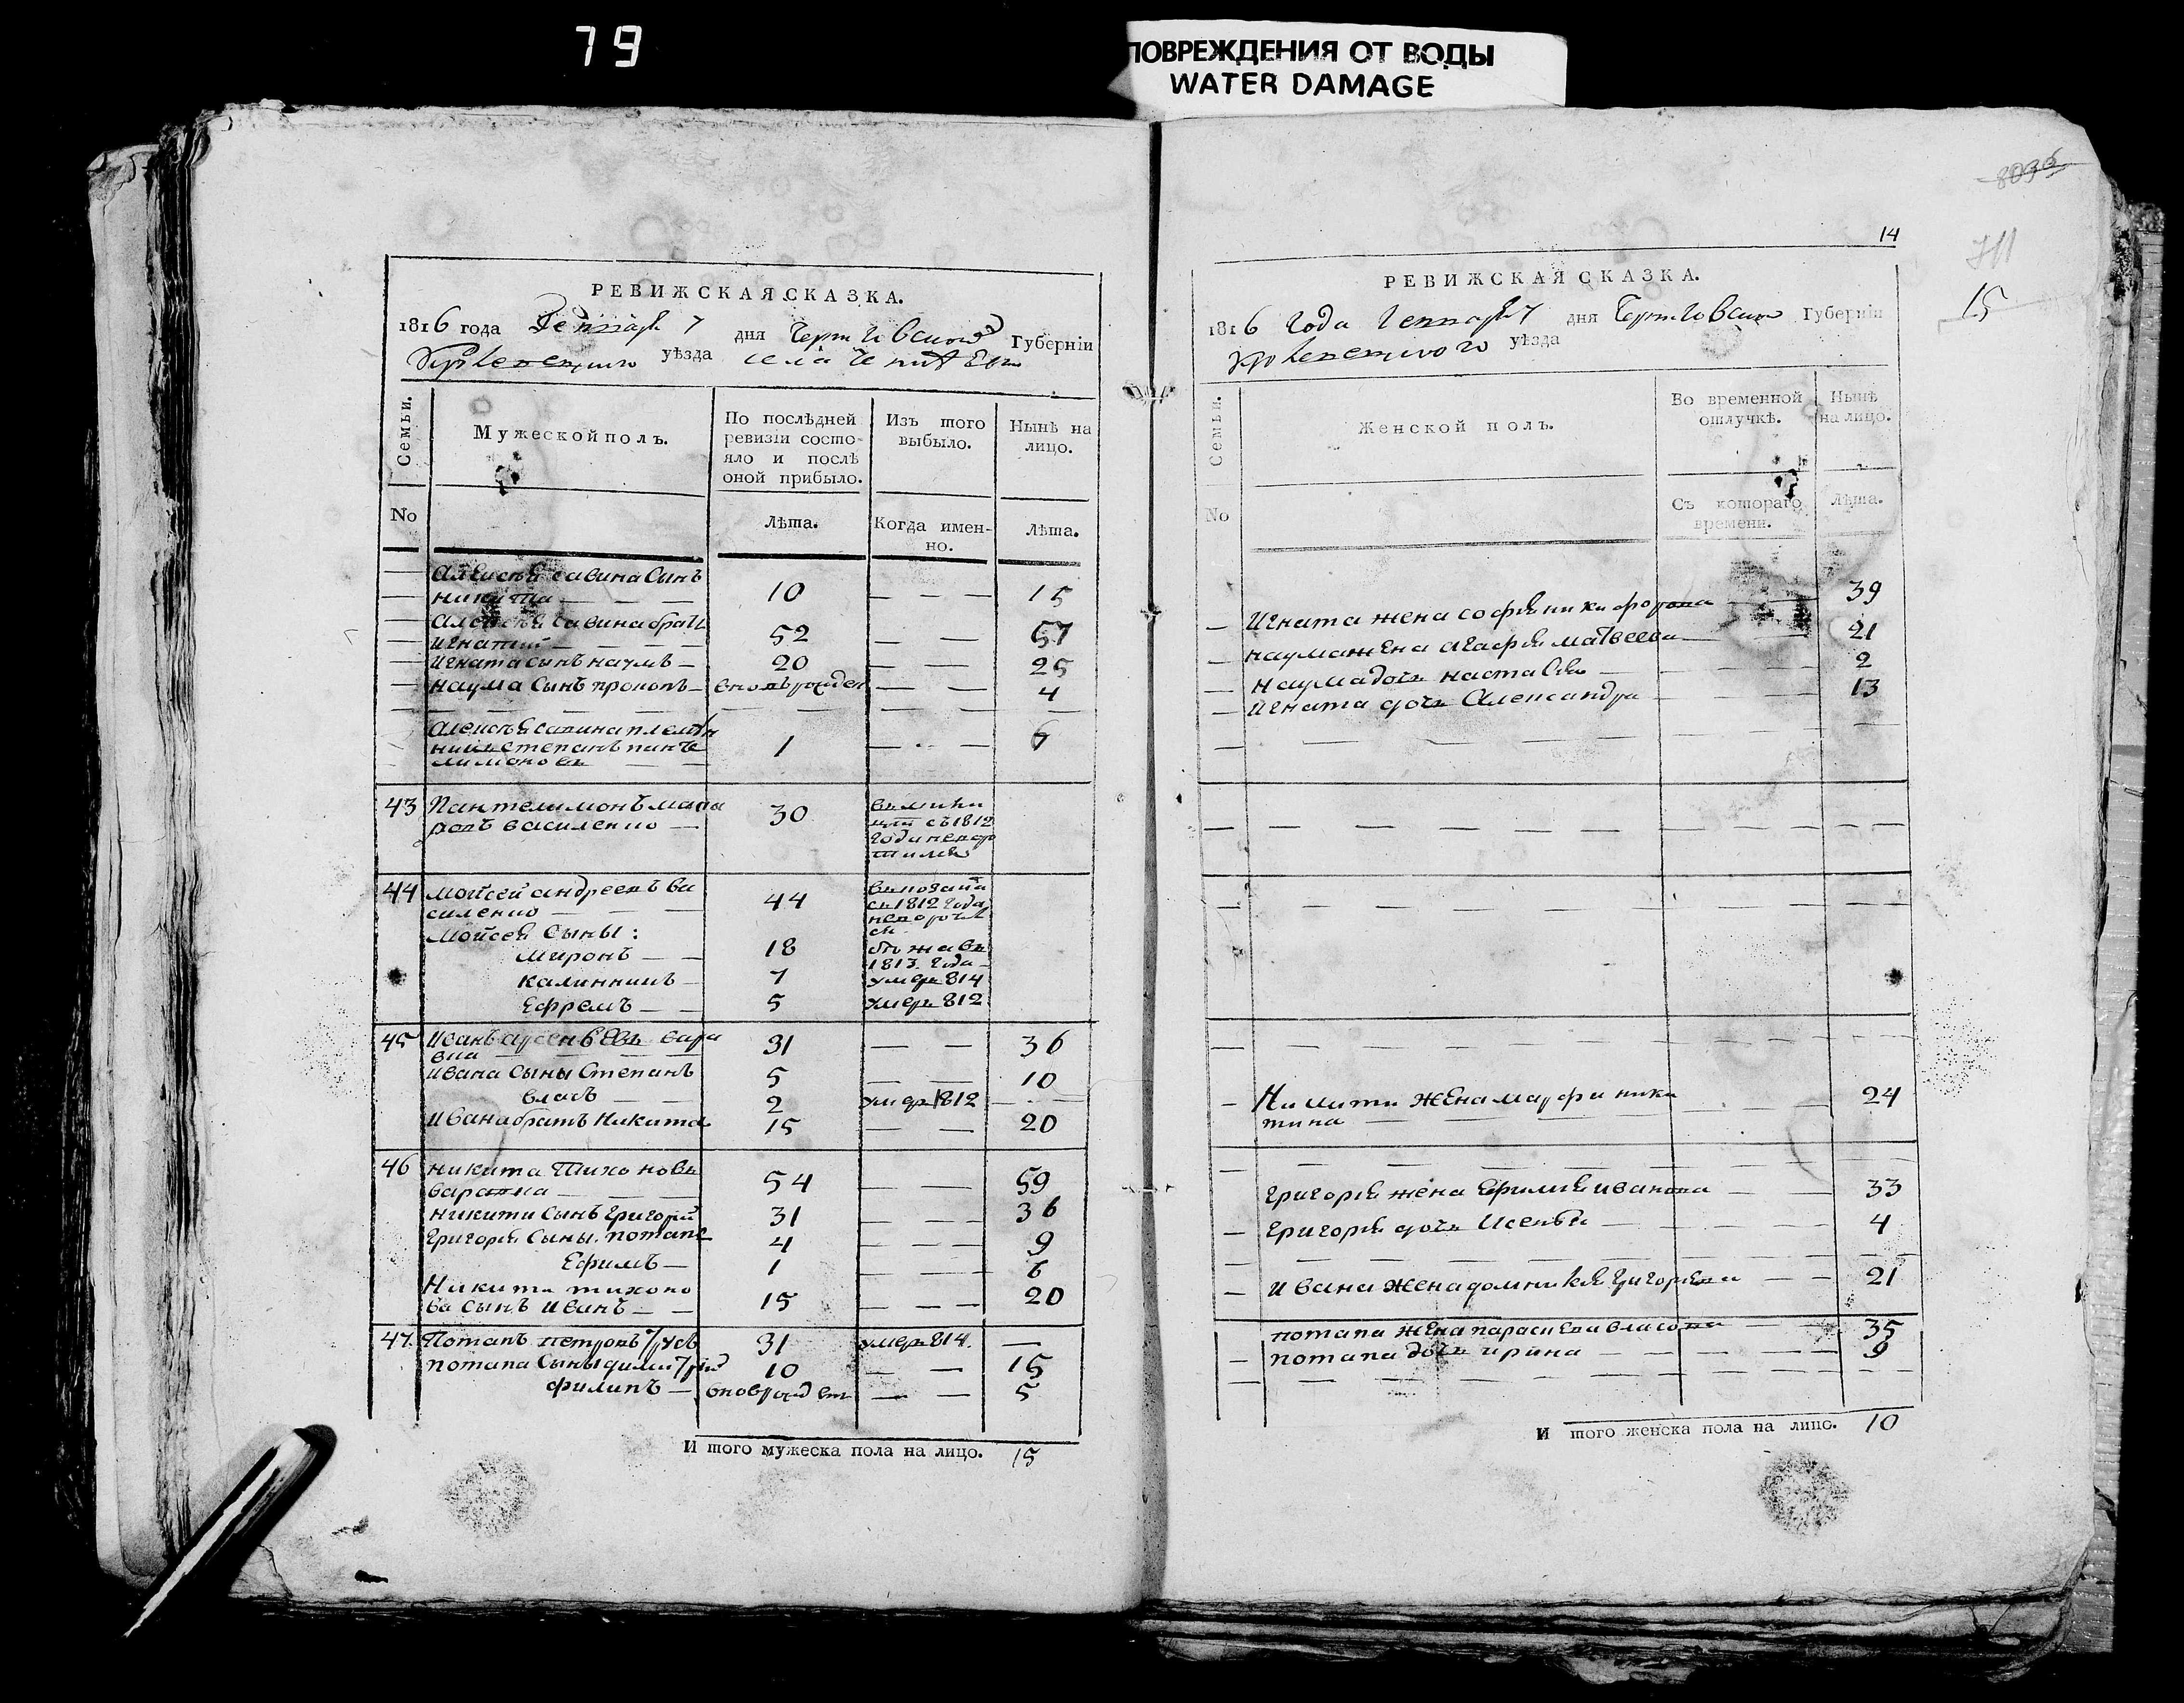 79
ПОВРЕЖДЕНИЯ ОТ ВОДЫ
WATER DAMAGE
РЕВИЖСКАЯ СКАЗКА.
1816 года Генваря 7 дня Черниговской Губерніи
уѣзда села
Семьи.
Мужеской полъ.
По послѣдней ревизіи состо-
яло и послѣ
оной прибыло.
Изъ того
выбыло.
Нынѣ на
лицо.
No
Лѣта.
Когда имен-
но.
Лѣта.
Алексѣя Савина Сынъ
Никита — — — 10 — — — 15
Алексѣя Савина братъ
Игнатий — — — 52 — — 57
Игната сынъ наумъ — 20 — — 25
Наума Сынъ прокопъ — вновь рожден — — 4
Алексѣя Савина племян
никъ Степанъ панте
лимоновъ — — 1 — — 6
43 Пантелимонъ
василенко — 30
съ 1812
года
44 Мойсей андреевъ ва
силенко — — — 44
съ 1812 года
Мойсея Сыны:
Миронъ — — 18
1813 года
калинникъ — 7 умеръ 814
Ефремъ — — 5 умеръ 812
45 Иванъ арсенѣевъ вара
вка — — — 31 — — 36
Ивана Сыны Степанъ 5 — — 10
власъ — — 2 умеръ 1812 — —
Ивана братъ Никита 15 — — 20
46 Никита Тихоновъ
варавка — — — 54 — — 59
Никити Сынъ Григорий 31 — — — 36
Григорія Сыны: потапъ 4 — — — 9
Ефимъ — 1 — — 6
Никити тихоно
ва Сынъ Иванъ — — 15 — — — 20
47. Потапъ петровъ 31 умеръ 814. —
потапа Сыны 10 — — 15
филипъ — вновь рожден — — 5
И того мужеска пола на лицо. 15
14
711
15
РЕВИЖСКАЯ СКАЗКА.
1816 года Генваря 7 дня Черниговской Губерніи
уѣзда
Семьи.
Женской полъ.
Во временной
отлучкѣ.
Нынѣ
на лицо.
No
Съ котораго
времени.
Лѣта.
— Игната жена софія никифорова — — 39
— Наума жена агафія матвеева — — 21
— Наума дочь настасія — 2
— Игната дочь Александра — — 13
— Никити жена марфа ники
тина — — — 24
Григорія жена Ефимія иванова — — 33
— Григорія дочь — — — 4
— Ивана жена домникія григорьева — — 21
потапа жена параскева власова — — 35
— потапа дочь ирина — — — 9
И того женска пола на лицо. 10